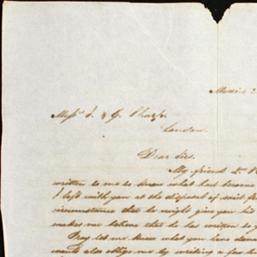 Mess J. & G.
London.
Dear Sirs.
My friend
written to me to know what had become
I left with you at the disposal of said
circumstance that he might give you his
makes me believe that he has written to
Pray let me know what you have done
also oblige me by writing a few